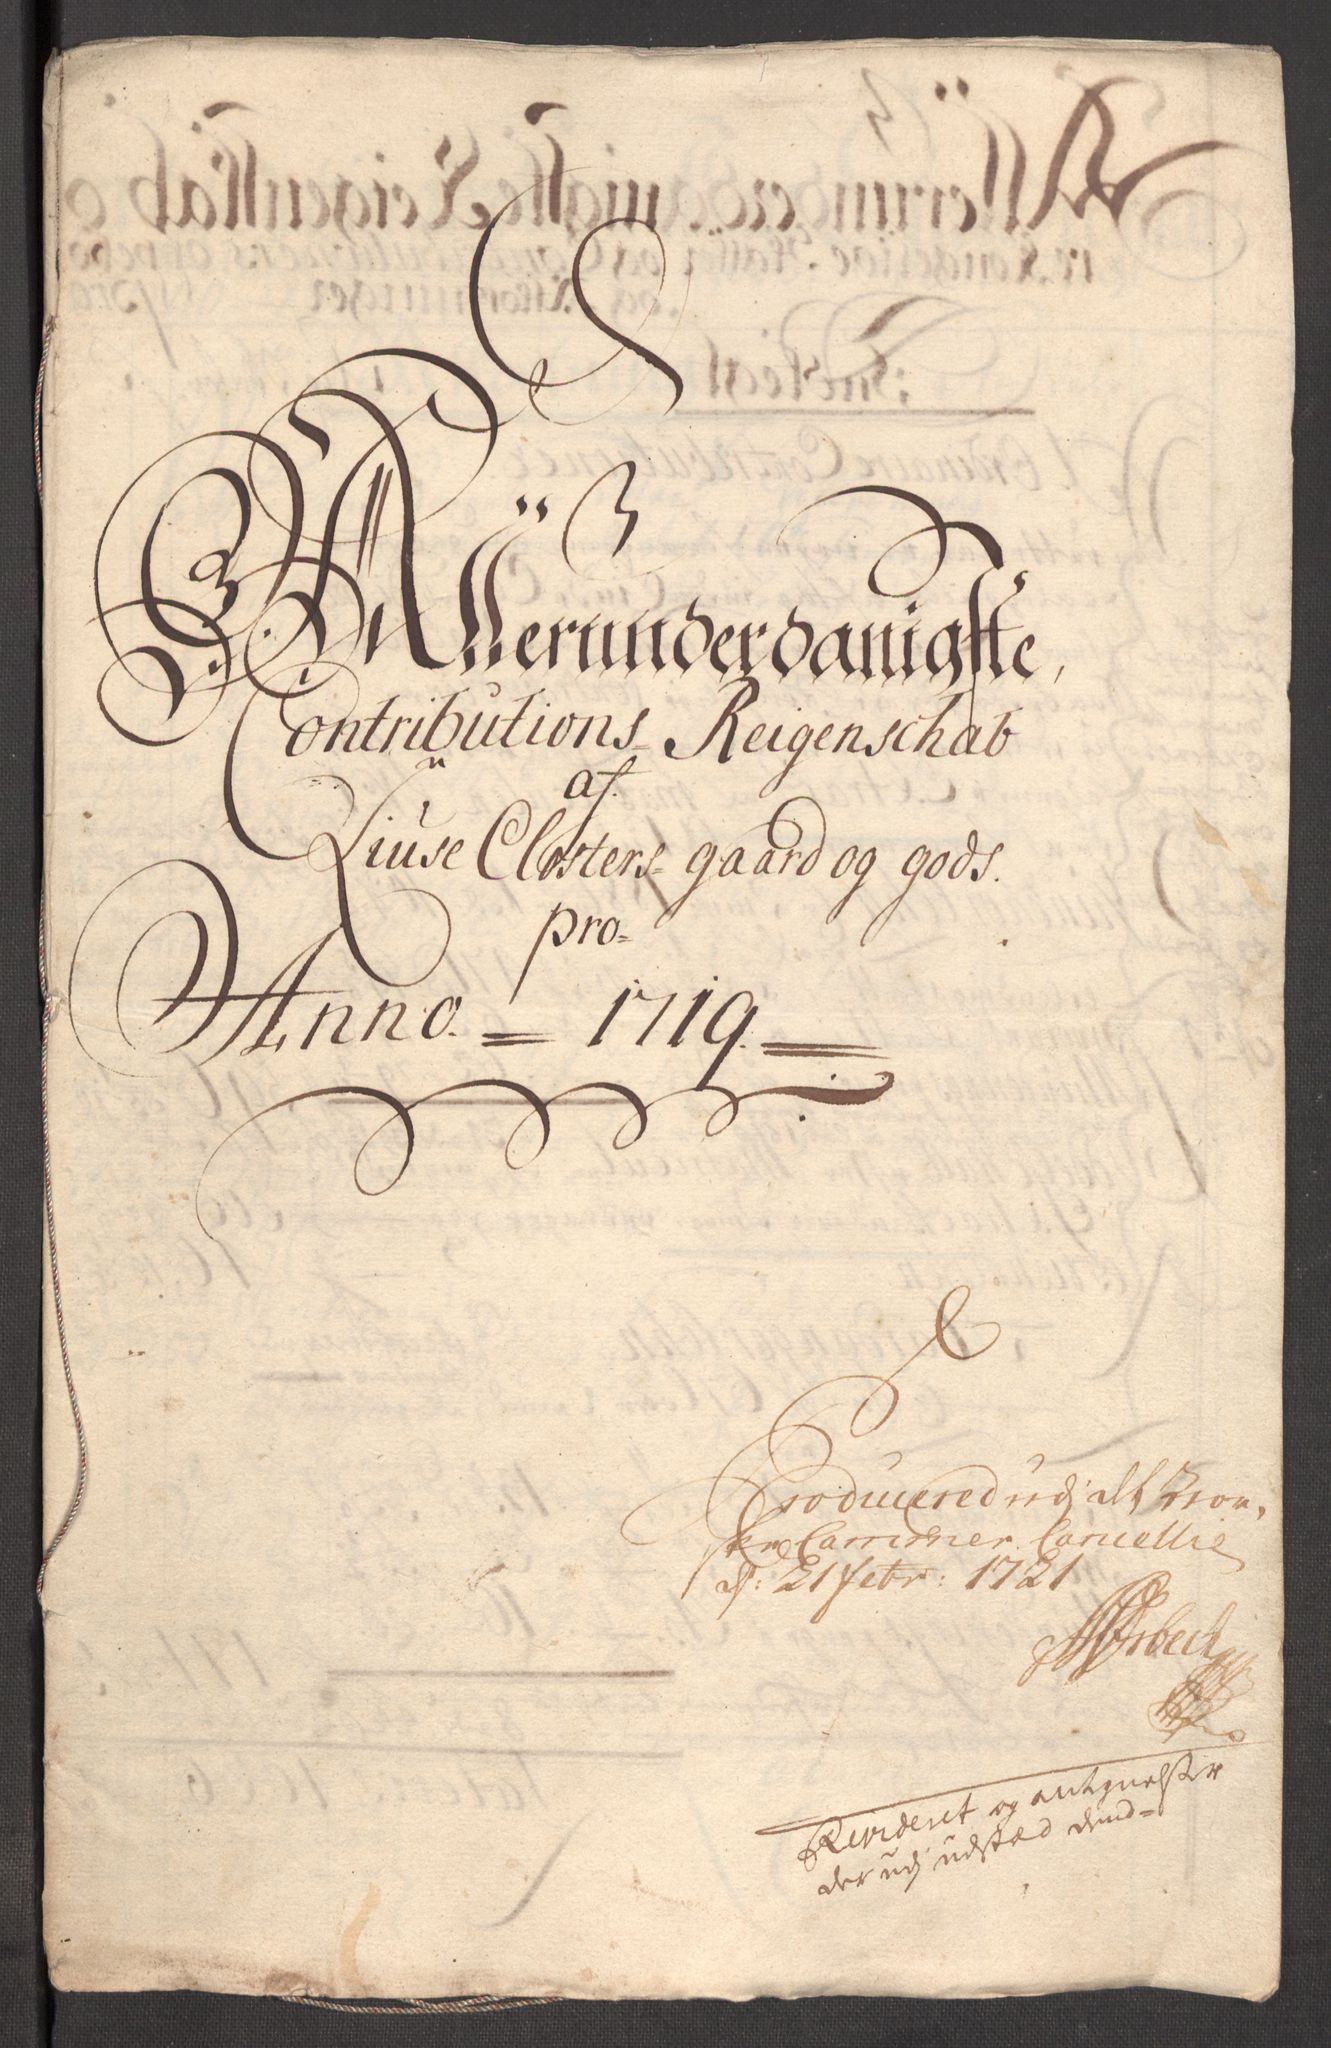 Allerunderdanigste,
Contributions= Reigenschab
af
Liuse Closters= gaard og gods.
pro=
Anno. = 1719.
Producered udj det Nor,
ske Cammer Cancellie
d: 21 febr: 1721
Revideret og antegnelster
der udj udstæd